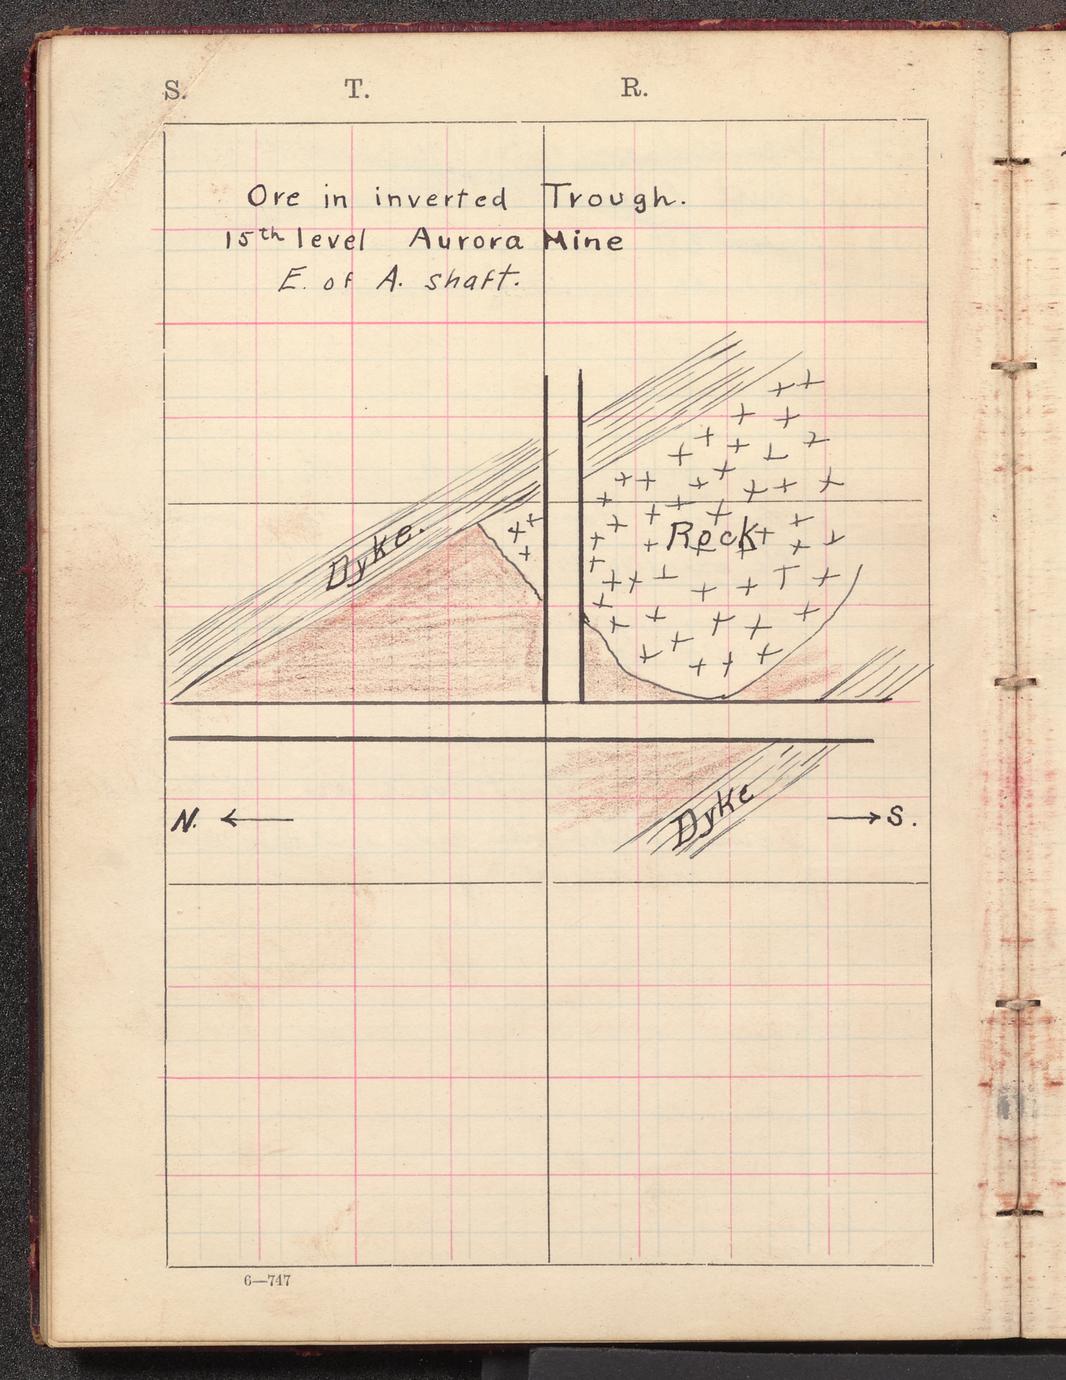 S. T. R.
Ore in inverted Trough.
15th level Aurora Mine
E. of A. shaft.
Dyke.
Rock
Dyke
N. ← → S.
6—747